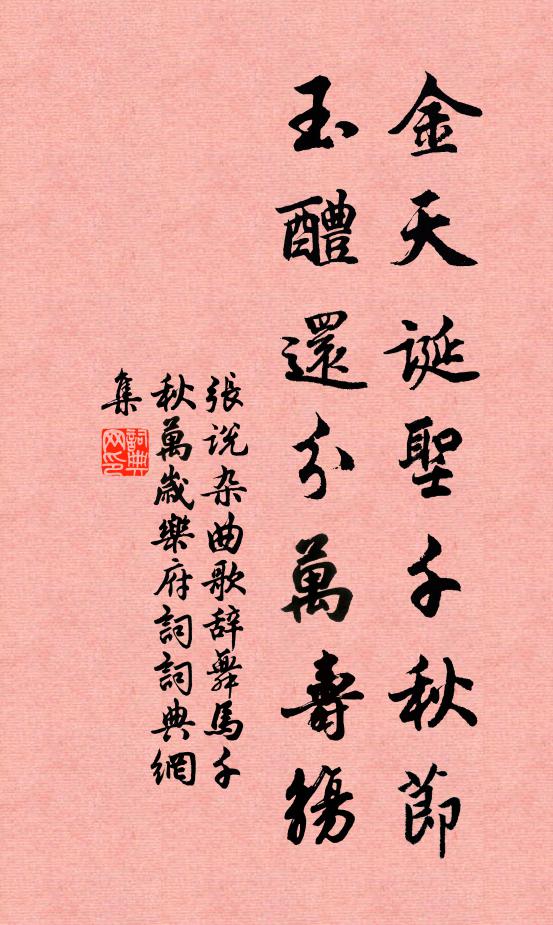 金天誕聖千秋節
玉醴還分萬壽觴
張說杂曲歌辞舞馬千
秋萬歲樂府詞詞典網
集
詞典
网印